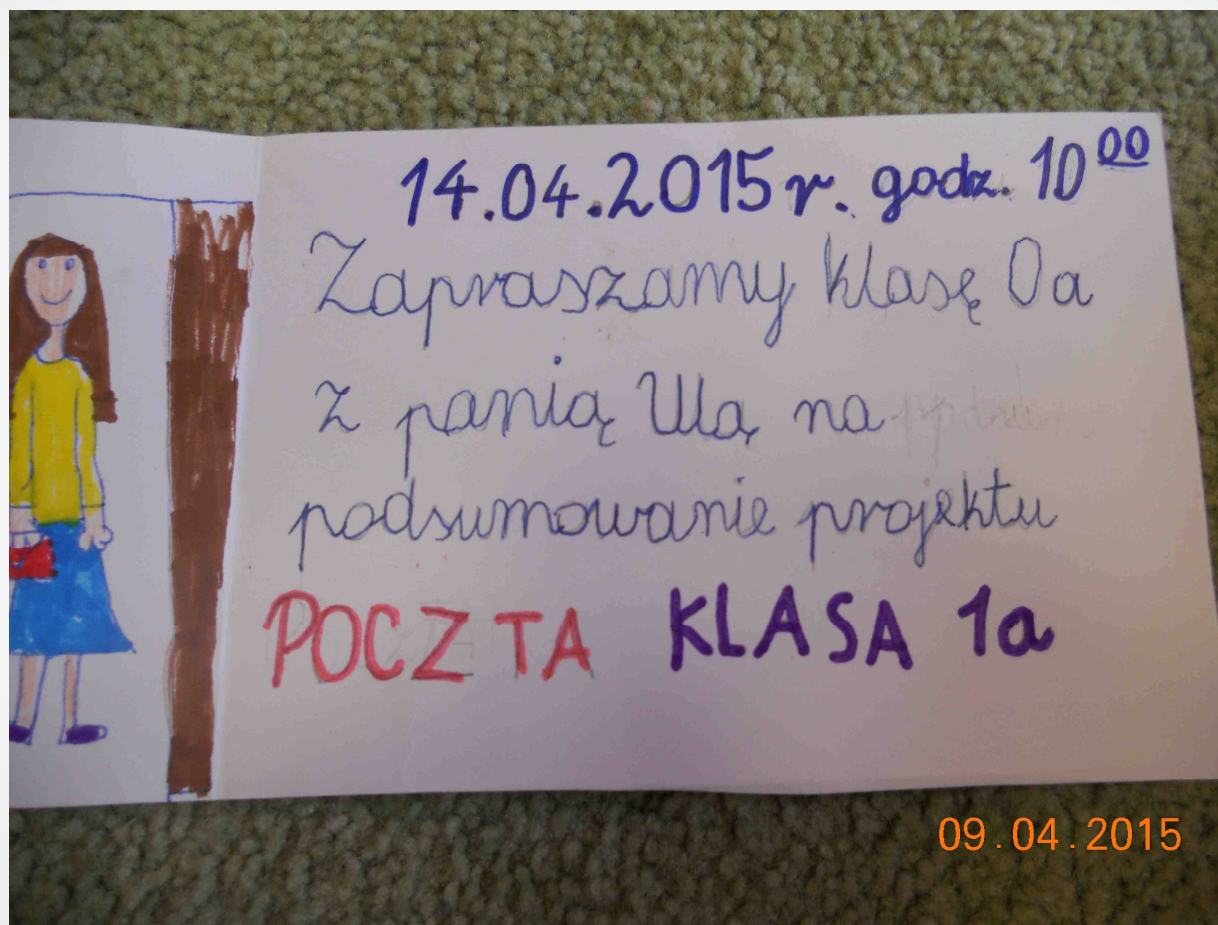 14.04.2015 r. godz. 10 00
Zapraszamy klasę 0a
z panią Ulą na
podsumowanie projektu
POCZTA KLASA 1a
09.04.2015